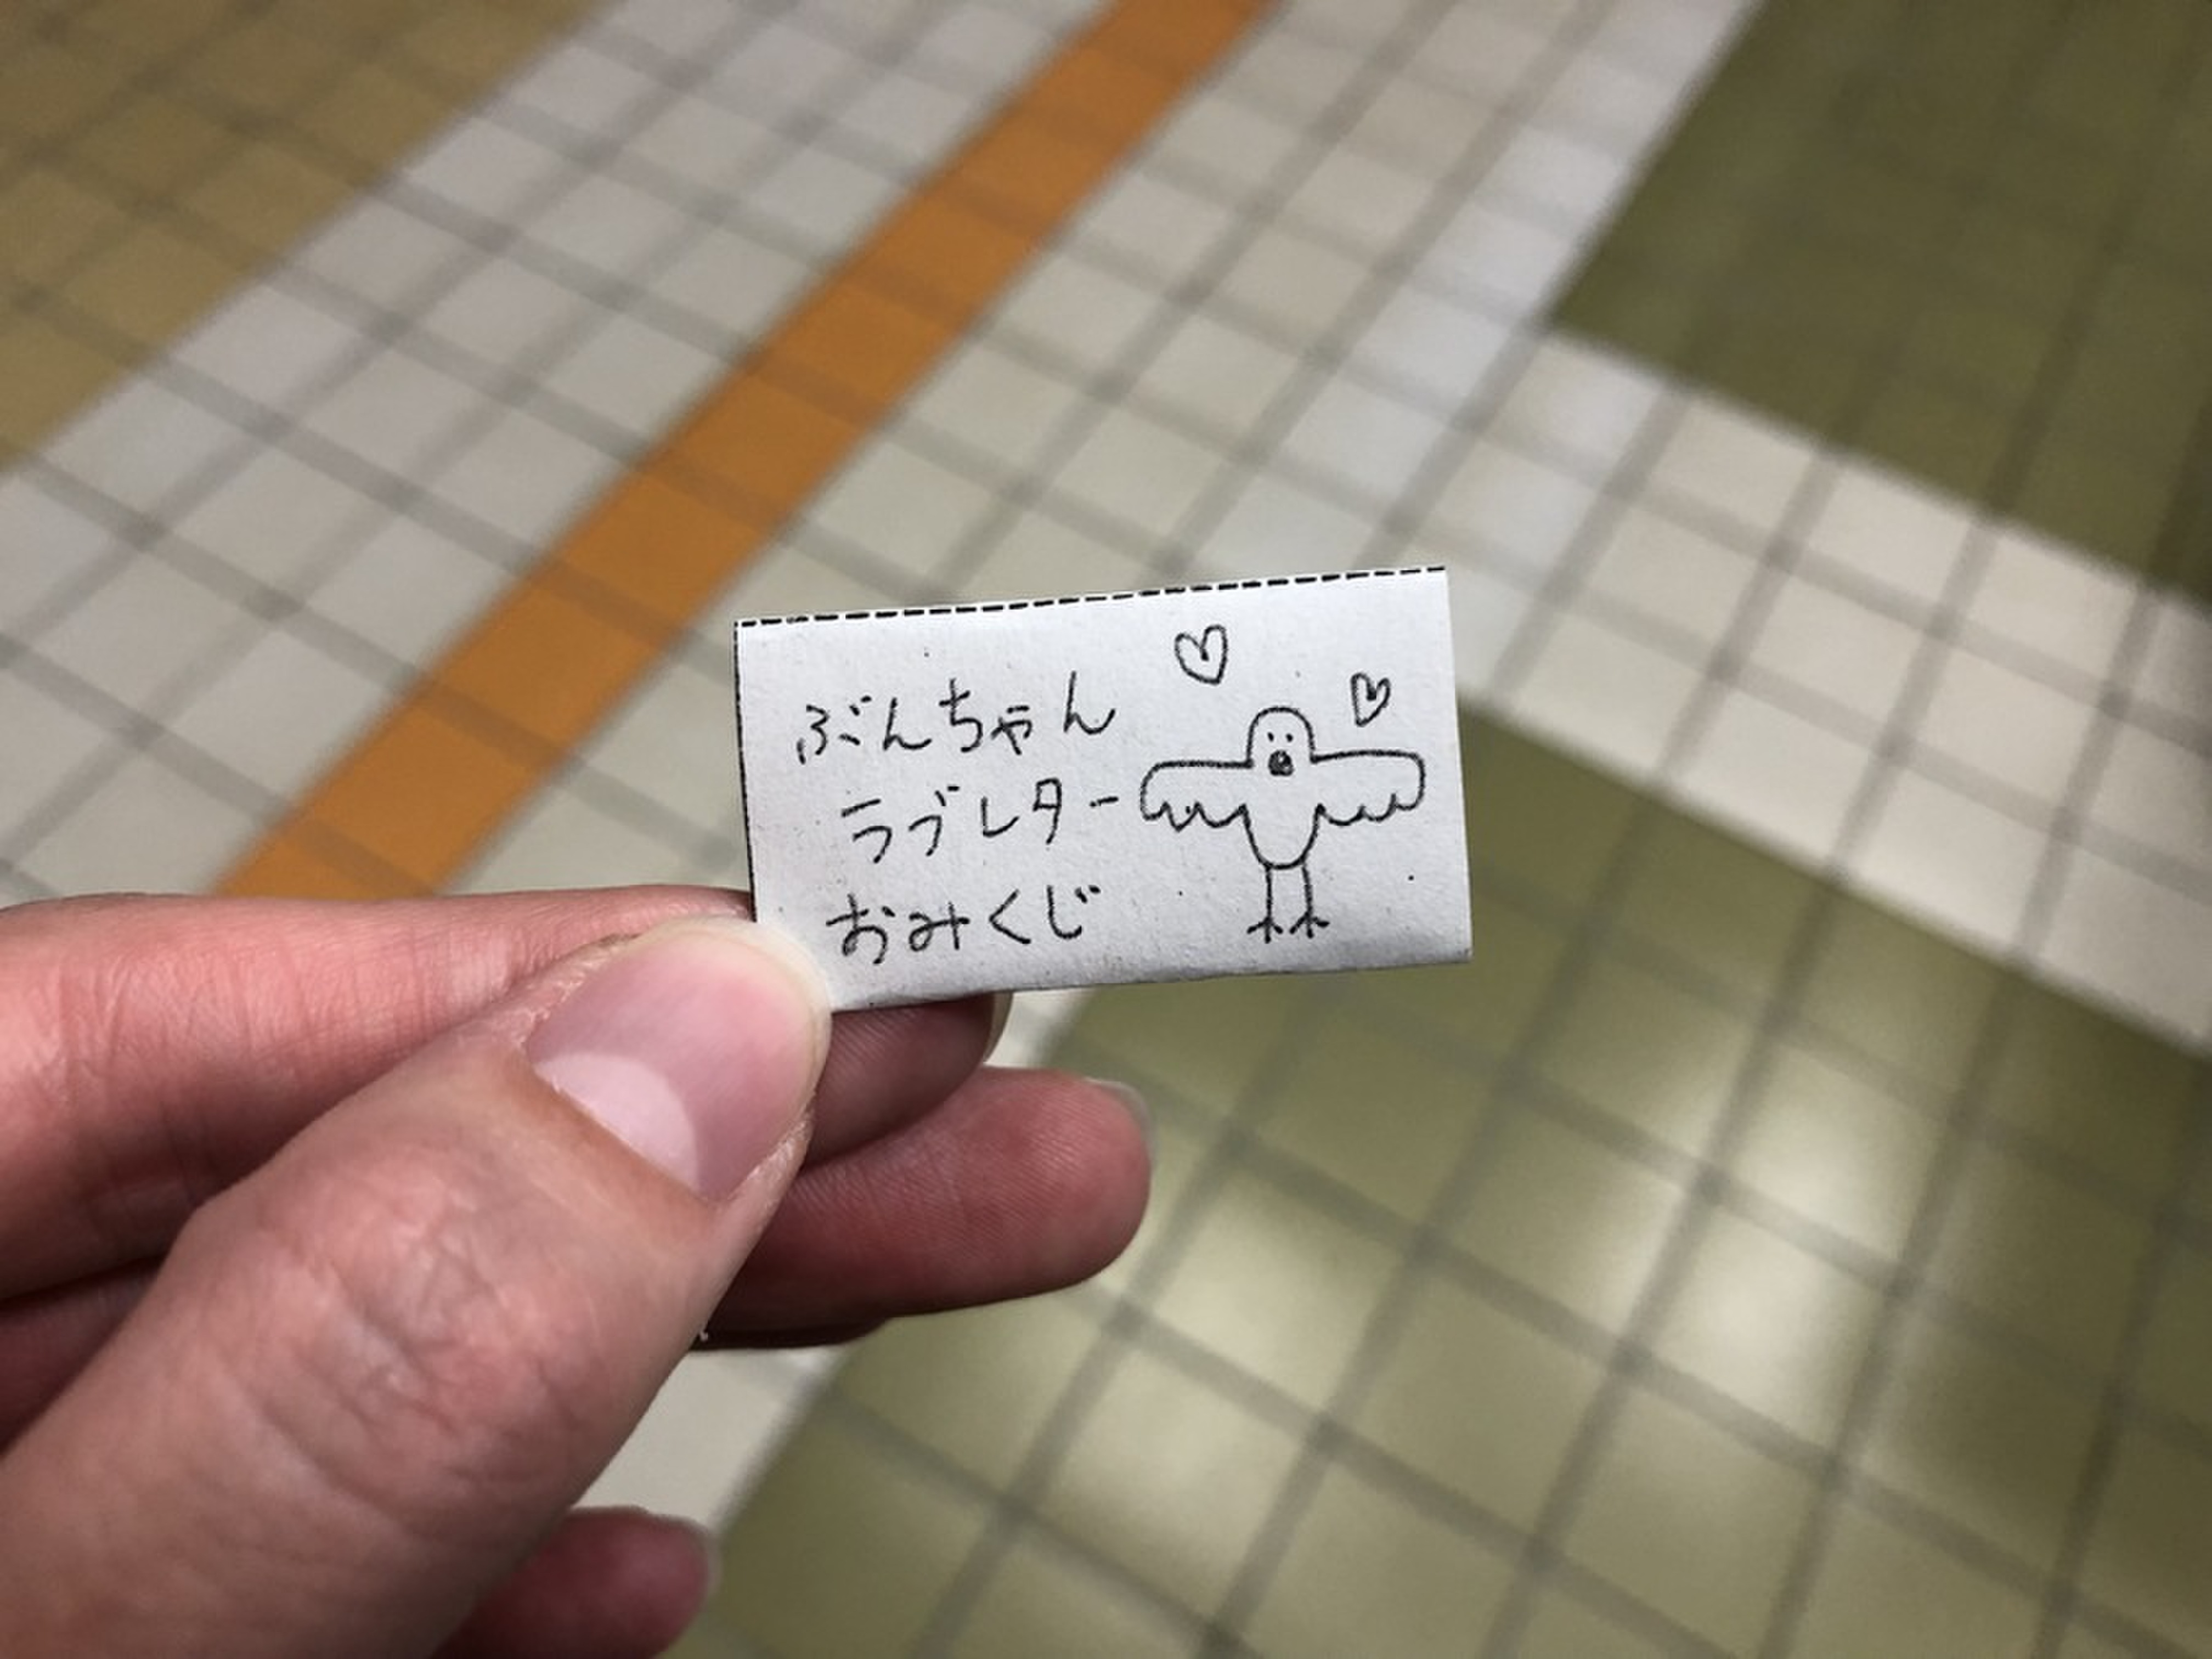 ぶんちゃん
ラブレター
おみくじ